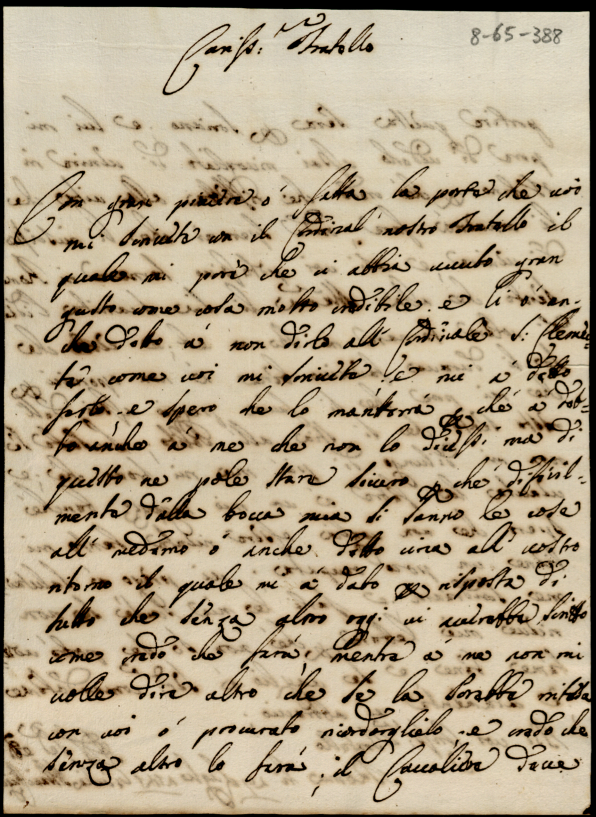 8-65-388
Cariss: mo Fratello
Con gran puntra ó fatta la parte che voi
mi scrivete con il Cardinal nostro Fratello il
quale mi pare che vi abbia avuto gran
gusto come cosa molto credibile e li ó an-
che detto á non dirlo all Cardinale S: Clemen-
te come voi mi scrivete e mi á detto
farlo e spero che lo manterrá perché á det-
to anche á me che non lo dicessi ma di
questo ne pole stare sicuro perché dificil-
mente dalla bocca mia si sanno le cose
all medemo ó anche detto circa all vostro
ritorno il quale mi á dato per risposta di
tutto che senza altro oggi vi averebbe scritto
come credo che fará, mentre á me non mi
volle dire altro che se la sarebbe intesa
con voi ó procurato ricordarglielo e credo che
senza altro lo fará, il Cavaliere deve